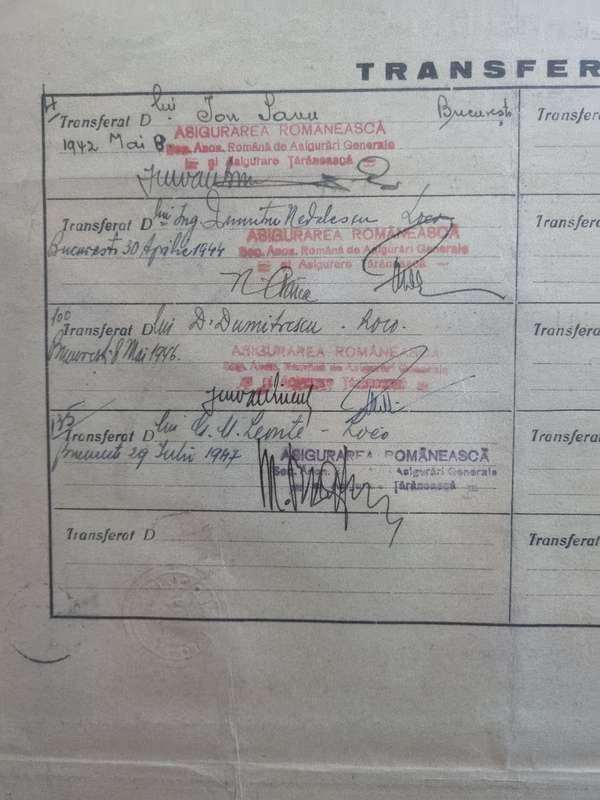 TRANSFER
Transferat D lui Ion Sanu București
1942 Mai 8
ASIGURAREA ROMÂNEASCĂ
Soc. Anon. Română de Asigurări Generale
și Asigurare Țărănească
Transferat D lui Ing. Dumitru Nedelescu Loco
București 30 Aprilie 1944
ASIGURAREA ROMÂNEASCĂ
Soc. Anon. Română de Asigurări Generale
și Asigurare Țărănească
100
Transferat D lui D. Dumitrescu - Loco.
București 8 Mai 1946.
ASIGURAREA ROMÂNEASCĂ
Soc. Anon. Română de Asigurări Generale
și Asigurare Țărănească
135
Transferat D lui G. M. Leonte - Loco
București 29 Iulie 1947
ASIGURAREA ROMÂNEASCĂ
Soc. Anon. Asigurări Generale
Țărănească
Transferat D
Transfera
Transfera
Transferat
Transferat
Transferat